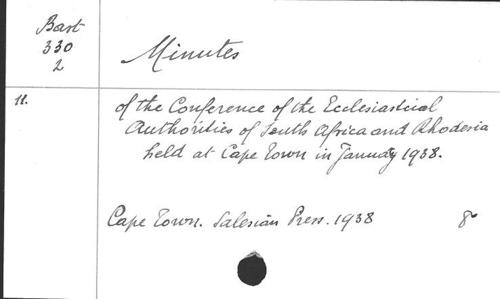 Bast
330
2
Minutes
11.
of the Conference of the Ecclesiastical
Authorities of South Africa and Rhodesia
held at Cape Town in January 1938.
Cape Town. Salesian Press. 1938 8º